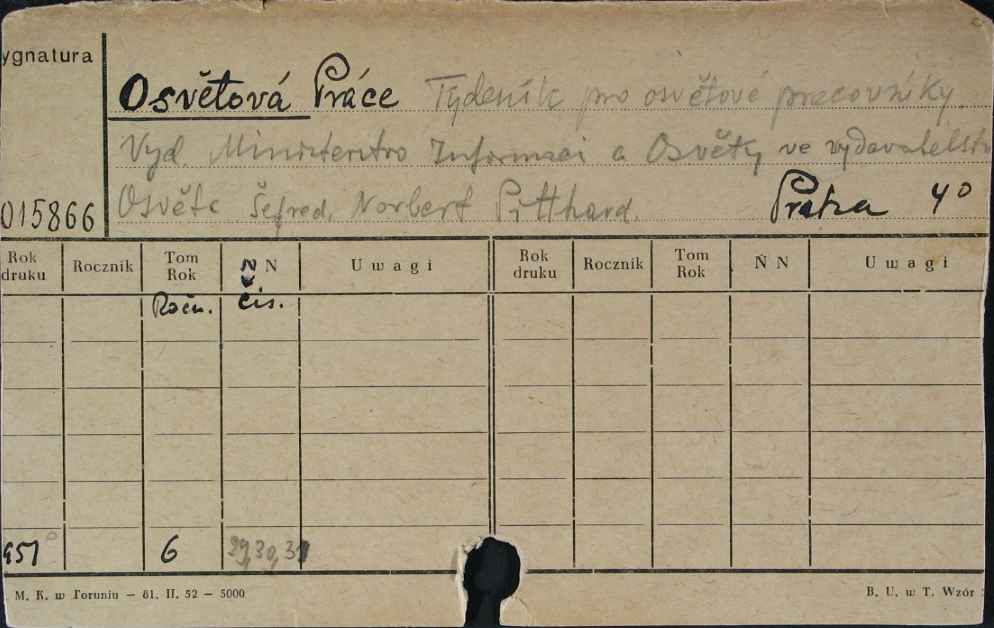 ygnatura
Osvětová Práce Týdeník pro osvětové pracovníky.
Vyd. Ministerstvo Informací a Osvěty ve vydavatelstv
015866 Osvěta Šefred. Norbert Pitthard. Praha 4°
Rok druku Rocznik Tom Rok N N Uwagi Rok druku Rocznik Tom Rok N N Uwagi
Ročn. čís.
951 6 29,30,31
M. K. w Toruniu — 61. II. 52 — 5000 B. U. w T. Wzór